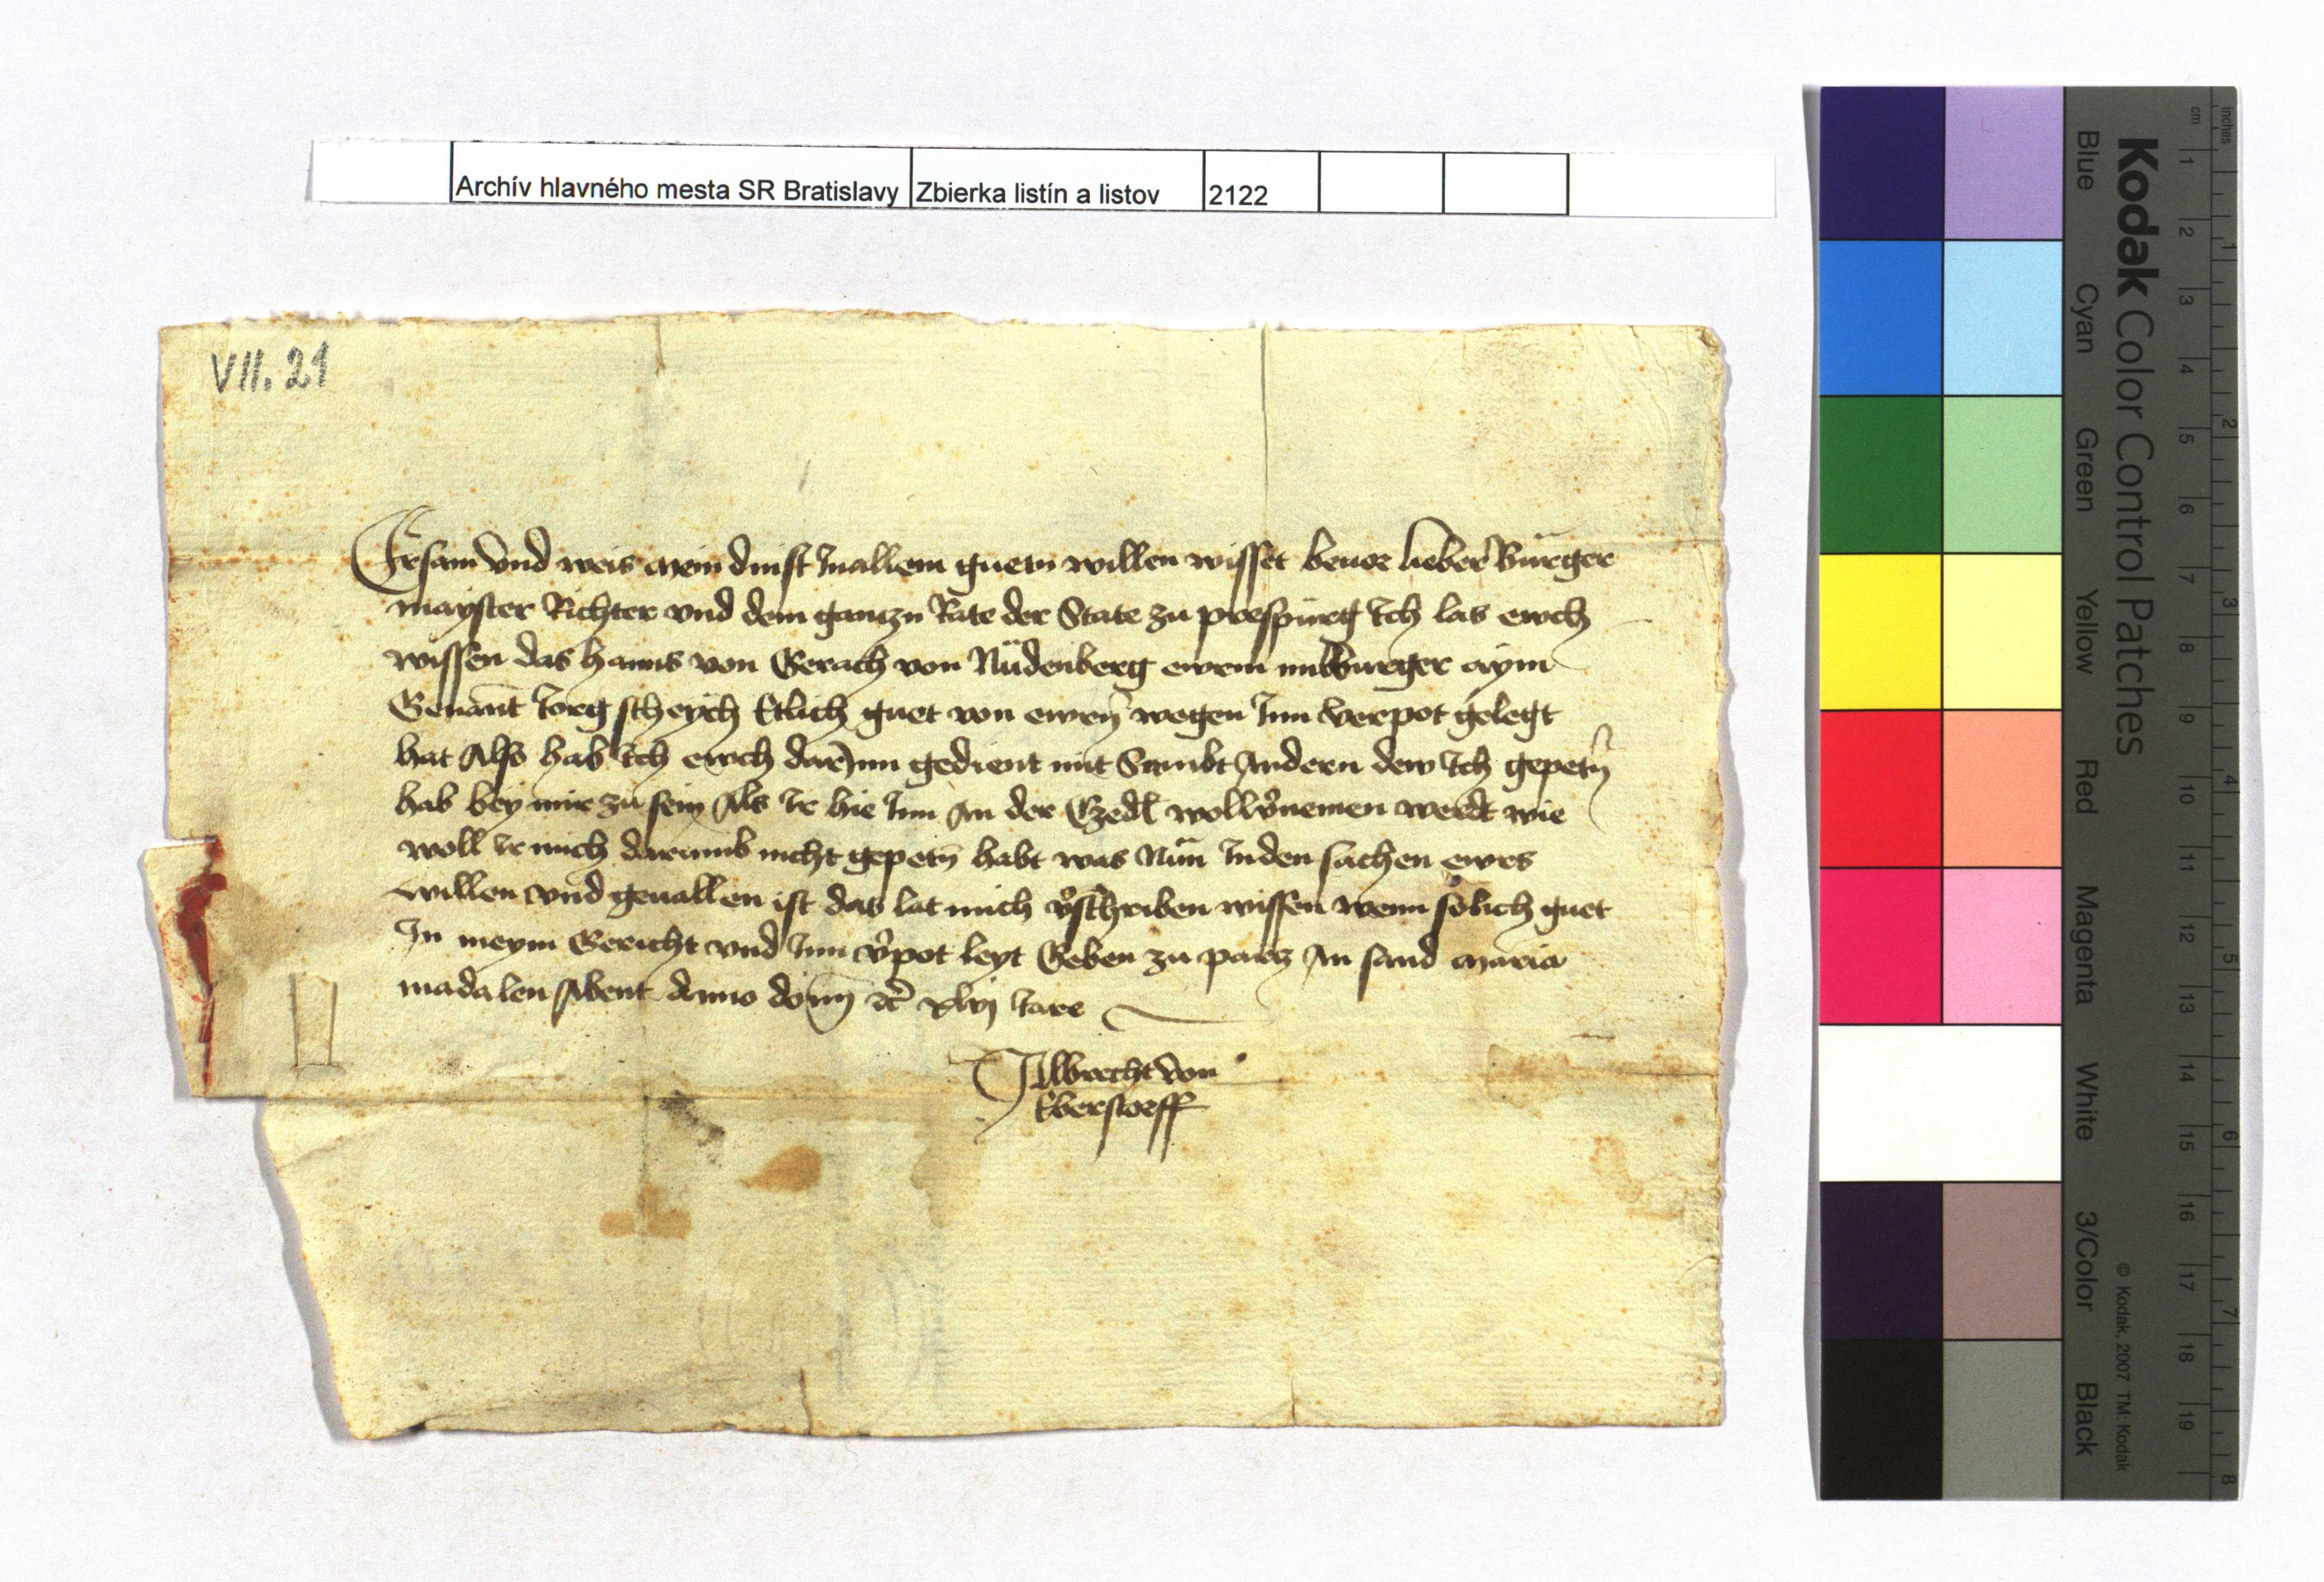 Archív hlavného mesta SR Bratislavy Zbierka listín a listov 2122
VII. 21
Ersam vnd weis mein dinst Inallem guetn willen wisset beuor lieber Burger
mayster Richter vnd dem gantzn Rate der State zu prespurg Ich las ewch
wissen das hanns von Gerach von Nüdenberg ewrm mitburger aym
Genant Jorg scheych Etlich guet von ewrn wegen Inn verpot gelegt
hat Also hab Ich ewch darinn gedient mit Sambt Andern dew Ich gepetn
hab bey mir zu sein Als Ir hie Inn An der Czedl woll vernemen werdt wie
woll Ir mich darumb nicht gepetn habt was Nün Inden sachen ewrs
willen vnd geuallen ist das lat mich verschriben wissen wenn sölich guet
In meym Gericht vnd Inn verpot leyt Geben zu partz An sand maria
madalen Abent Anno domini etc xlvj Jare
Albrecht von
Eberstorff
Kodak Color Control Patches
Blue Cyan Green Yellow Red Magenta White 3/Color Black
inches 1 2 3 4 5 6 7 8
cm 1 2 3 4 5 6 7 8 9 10 11 12 13 14 15 16 17 18 19
© Kodak, 2007 TM: Kodak